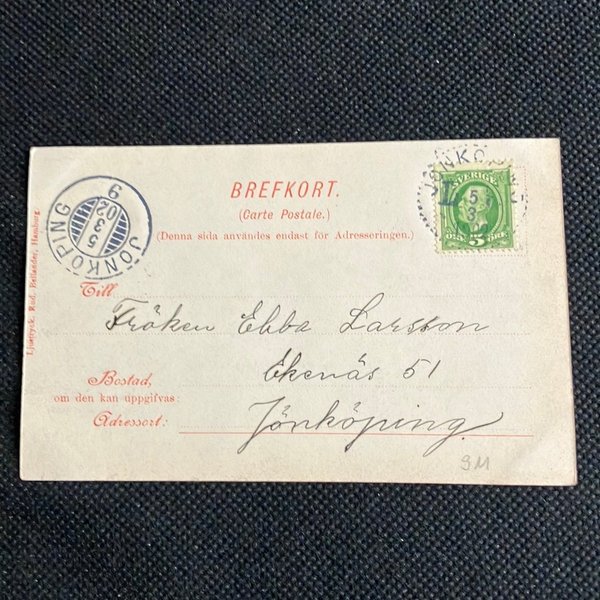 BREFKORT.
(Carte Postale.)
(Denna sida användes endast för Adresseringen.)
JÖNKÖPING
5
3
02
9
JÖNKÖPING
L
5
3
SVERIGE
5
ÖRE
Till
Fröken Ebba Larsson
Ekenäs 51
Bostad,
om den kan uppgifvas:
Adressort:
Jönköping
Ljustryck. Rud. Bellander, Hamburg